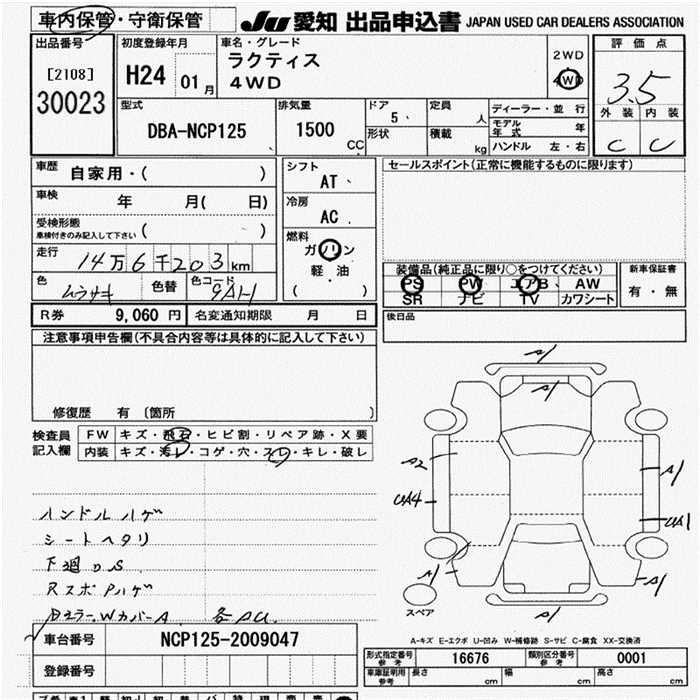 車内保管・守衛保管 JU 愛知 出品申込書 JAPAN USED CAR DEALERS ASSOCIATION
出品番号 初度登録年月 車名・グレード 2WD 評価点
[2108] H24 01月 ラクティス 4WD 3.5
30023 4WD 外装 内装
型式 排気量 ドア 定員 ディーラー・並行 C C
DBA-NCP125 1500 CC 5 人 モデル年式 年
形状 積載 kg ハンドル 左・右
車歴 自家用・( ) シフト AT セールスポイント(正常に機能するものに限ります)
車検 年 月( 日) 冷房 AC
受検形態 車検付きのみ記入して下さい ( ) 燃料 ガソリン
走行 14万6千203km 軽・油
色 ムラサキ 色替 色コード 9AH ( ) 装備品(純正品に限り○をつけてください) 新車保証書
PS PW エアB AW 有・無
SR ナビ TV カワシート
R券 9,060 円 名変通知期限 月 日 後日品
注意事項申告欄(不具合内容等は具体的に記入して下さい)
修復歴 有 〔箇所 〕
検査員記入欄 FW キズ・飛石・ヒビ割・リペア跡・X要
内装 キズ・汚レ・コゲ・穴・スレ・キレ・破レ
A1
A1
A2 A1
UA4 UA1
A1 A1
A1
スペア
ハンドルハゲ
シートヘタリ
下廻りS
RスポPハゲ
Wカバー A 各AU
A-キズ E-エクボ U-凹み W-補修跡 S-サビ C-腐食 XX-交換済
車台番号 NCP125-2009047
形式指定番号 参考 16676 類別区分番号 参考 0001
登録番号 車庫証明用 参考 長さ cm 幅 cm 高さ cm